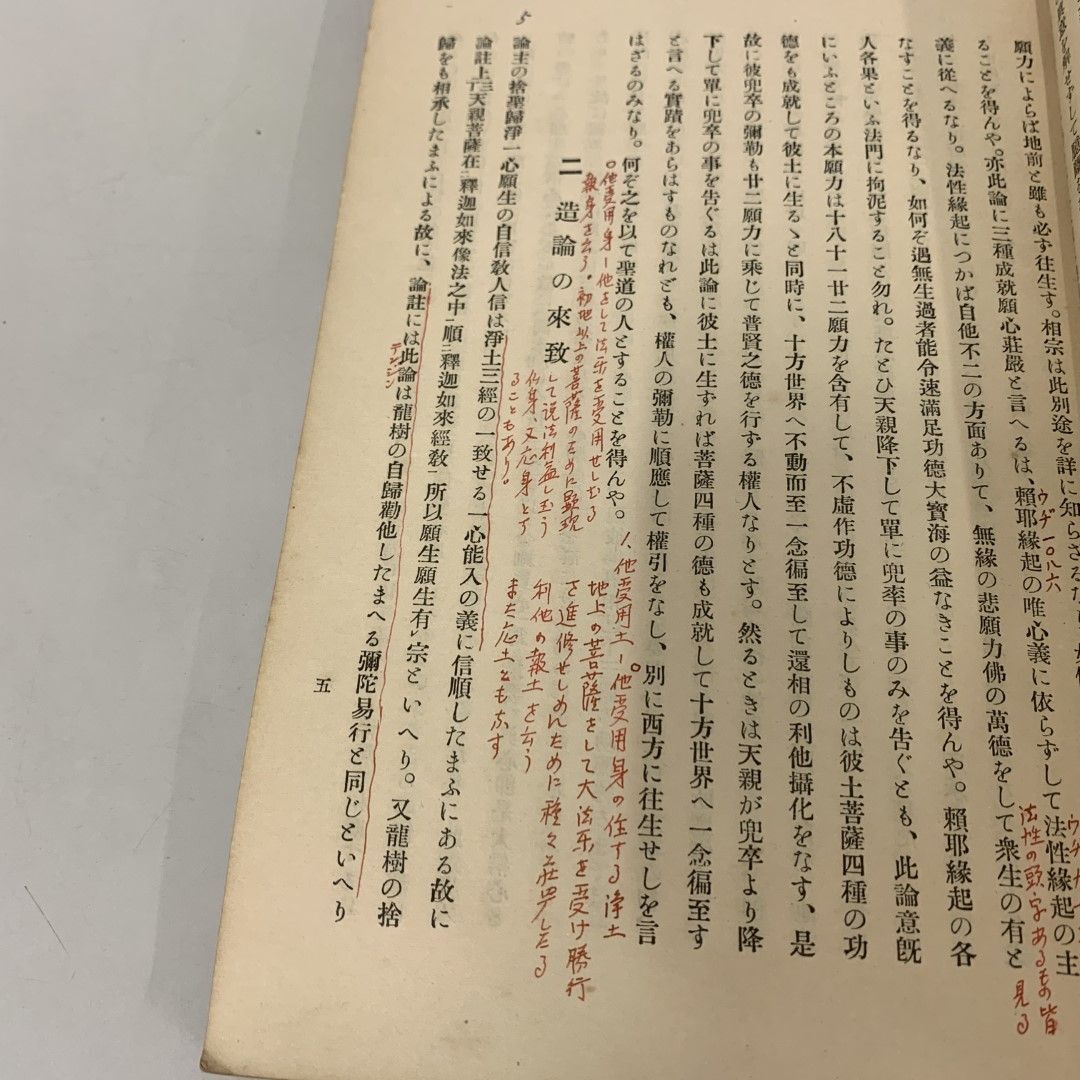 願力によらば地前と雖も必ず往生す。相宗は此別途を詳に知らざる
ることを得んや。亦此論に三種成就願心莊嚴と言へるは、賴耶緣起の唯心義に依らずして法性緣起の主
義に從へるなり。法性緣起につかば自他不二の方面ありて、無緣の悲願力佛の萬德をして衆生の有と
なすことを得るなり、如何ぞ遇無生過者能令速滿足功德大寶海の益なきことを得んや。賴耶緣起の各
人各果といふ法門に拘泥すること勿れ。たとひ天親降下して單に兜率の事のみを吿ぐとも、此論意旣
にいふところの本願力は十八十一廿二願力を含有して、不虛作功德によりしものは彼土菩薩四種の功
德をも成就して彼土に生るゝと同時に、十方世界へ不動而至一念徧至して還相の利他攝化をなす、是
故に彼兜卒の彌勒も廿二願力に乘じて普賢之德を行ずる權人なりとす。然るときは天親が兜卒より降
下して單に兜卒の事を吿ぐるは此論に彼土に生ずれば菩薩四種の德も成就して十方世界へ一念徧至す
と言へる實蹟をあらはすものなれども、權人の彌勒に順應して權引をなし、別に西方に往生せしを言
はざるのみなり。何ぞ之を以て聖道の人とすることを得んや。
二 造論の來致
論主の捨聖歸淨一心願生の自信敎人信は淨土三經の一致せる一心能入の義に信順したまふにある故に
論註上三丁天親菩薩在釋迦如來像法之中順釋迦如來經敎所以願生願生有宗といへり。又龍樹の捨
歸をも相承したまふによる故に、論註には此論は龍樹の自歸勸他したまへる彌陀易行と同じといへり
五
5
ウヂ一〇八六
法性の頭字あるもの皆
見る
〇他受用身ー他をして法樂を受用せしむる
報身を云う。初地以上の菩薩のために顕現
して説法利益し玉う
仏身、又応身とす
ることもあり。
1、他受用土ー他受用身の住する浄土
地上の菩薩をして大法樂を受け勝行
を進修せしめんために種々莊嚴したる
利他の報土を云う
また応土ともなす
テンジン